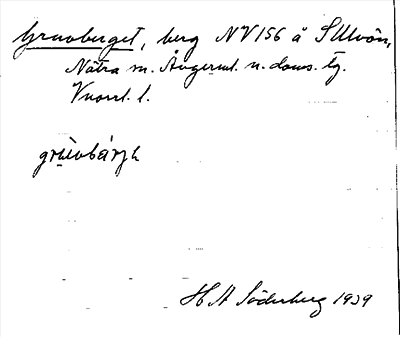 Gruvberget, berg NV156 å S Ulvön,
Nätra sn. Ångerml. n. doms. tg.
Vnorrl. l.
grùvbàrjh
H A Söderberg 1939